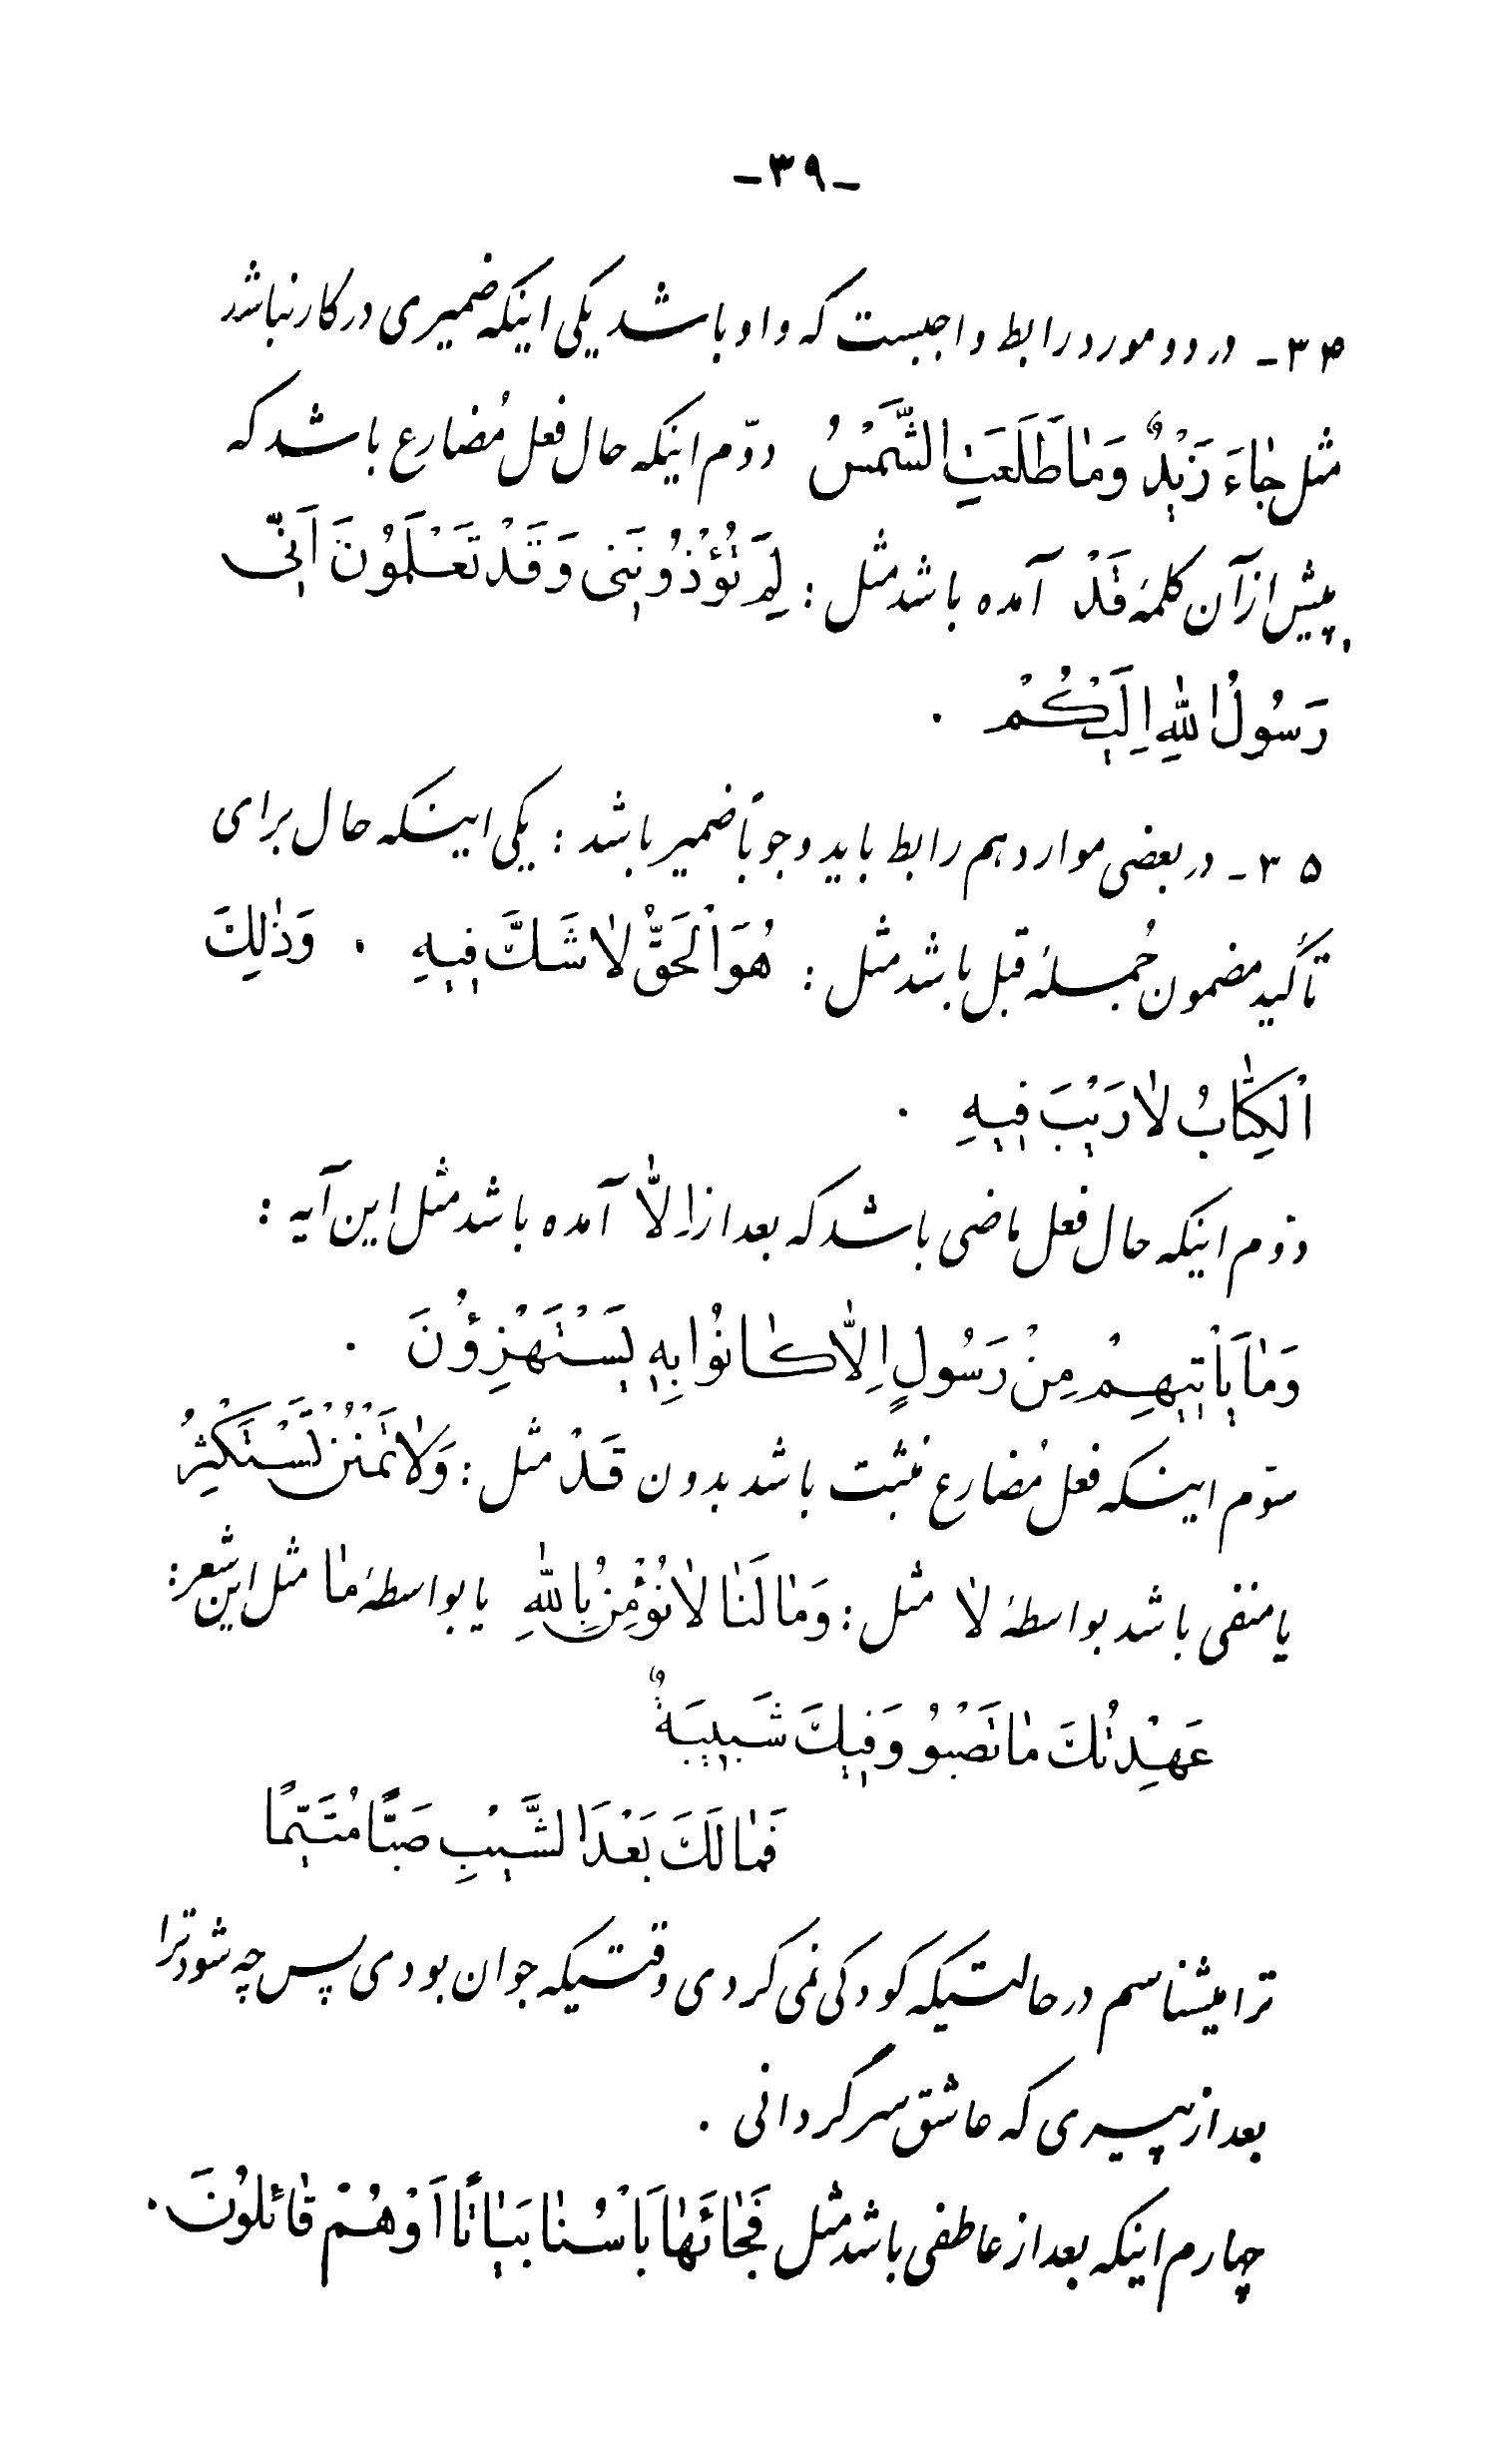 -۳۹-
۳۴- در دو مورد رابط واجبست که واو باشد یکی اینکه ضمیری در کار نباشد
مثل جٰاءَ زَیْدٌ وَمٰا طَلَعَتِ الشَّمْسُ دوّم اینکه حال فعل مُضارع باشد که
پیش از آن کلمهٔ قَدْ آمده باشد مثل : لِمَ تُؤْذُونَنی وَقَدْ تَعْلَمُونَ اَنّی
رَسُولُ اللّٰهِ اِلَیْکُمْ .
۳۵- در بعضی موارد هم رابط باید وجوباً ضمیر باشد : یکی اینکه حال برای
تأکید مضمون جُملهٔ قبل باشد مثل : هُوَ الْحَقُّ لٰا شَکَّ فیهِ . وَذٰلِکَ
الْکِتٰابُ لٰا رَیْبَ فیهِ .
دوّم اینکه حال فعل ماضی باشد که بعد از اِلاّٰ آمده باشد مثل این آیه :
وَمٰا یَأْتیهِمْ مِنْ رَسُولٍ اِلاّٰ کٰانُوا بِهِ یَسْتَهْزِؤُنَ .
سوّم اینکه فعل مُضارع مُثبت باشد بدون قَدْ مثل : وَلٰا تَمْنُنْ تَسْتَکْثِرُ
یا منفی باشد بواسطهٔ لٰا مثل : وَمٰا لَنٰا لٰا نُؤْمِنُ بِاللّٰهِ یا بواسطهٔ مٰا مثل این شعر :
عَهِدْتُکَ مٰا تَصْبُو وَفیکَ شَبیبَةٌ
فَمٰا لَکَ بَعْدَ الشَّیْبِ صَبّاً مُتَیَّماً
ترا میشناسم در حالتیکه کودکی نمی کردی وقتیکه جوان بودی پس چه شود ترا
بعد از پیری که عاشق سرگردانی .
چهارم اینکه بعد از عاطفی باشد مثل فَجٰائَهٰا بَأْسُنٰا بَیٰاتاً اَوْ هُمْ قٰائلُونَ .